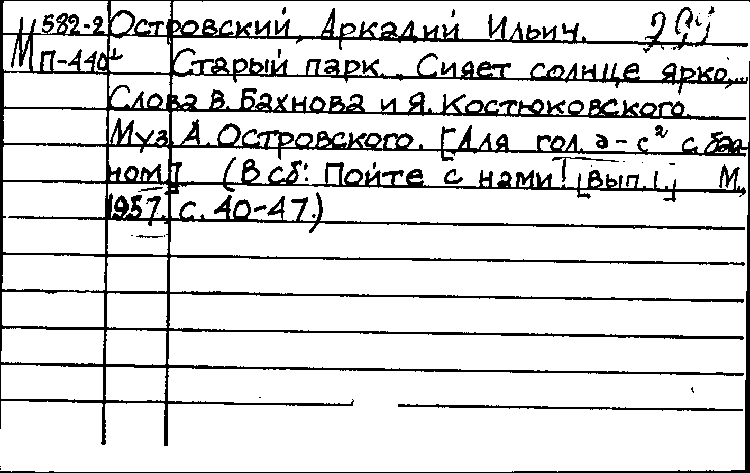 М 582-2 Островский, Аркадий Ильич.
П-440 Старый парк. Сияет солнце ярко,...
Слова В. Бахнова и Я. Костюковского.
Муз. А. Островского. [Для гол. d-c² с бая-
ном] (В сб: Пойте с нами! [Вып. 1.] М.,
1957. с. 40-47.)